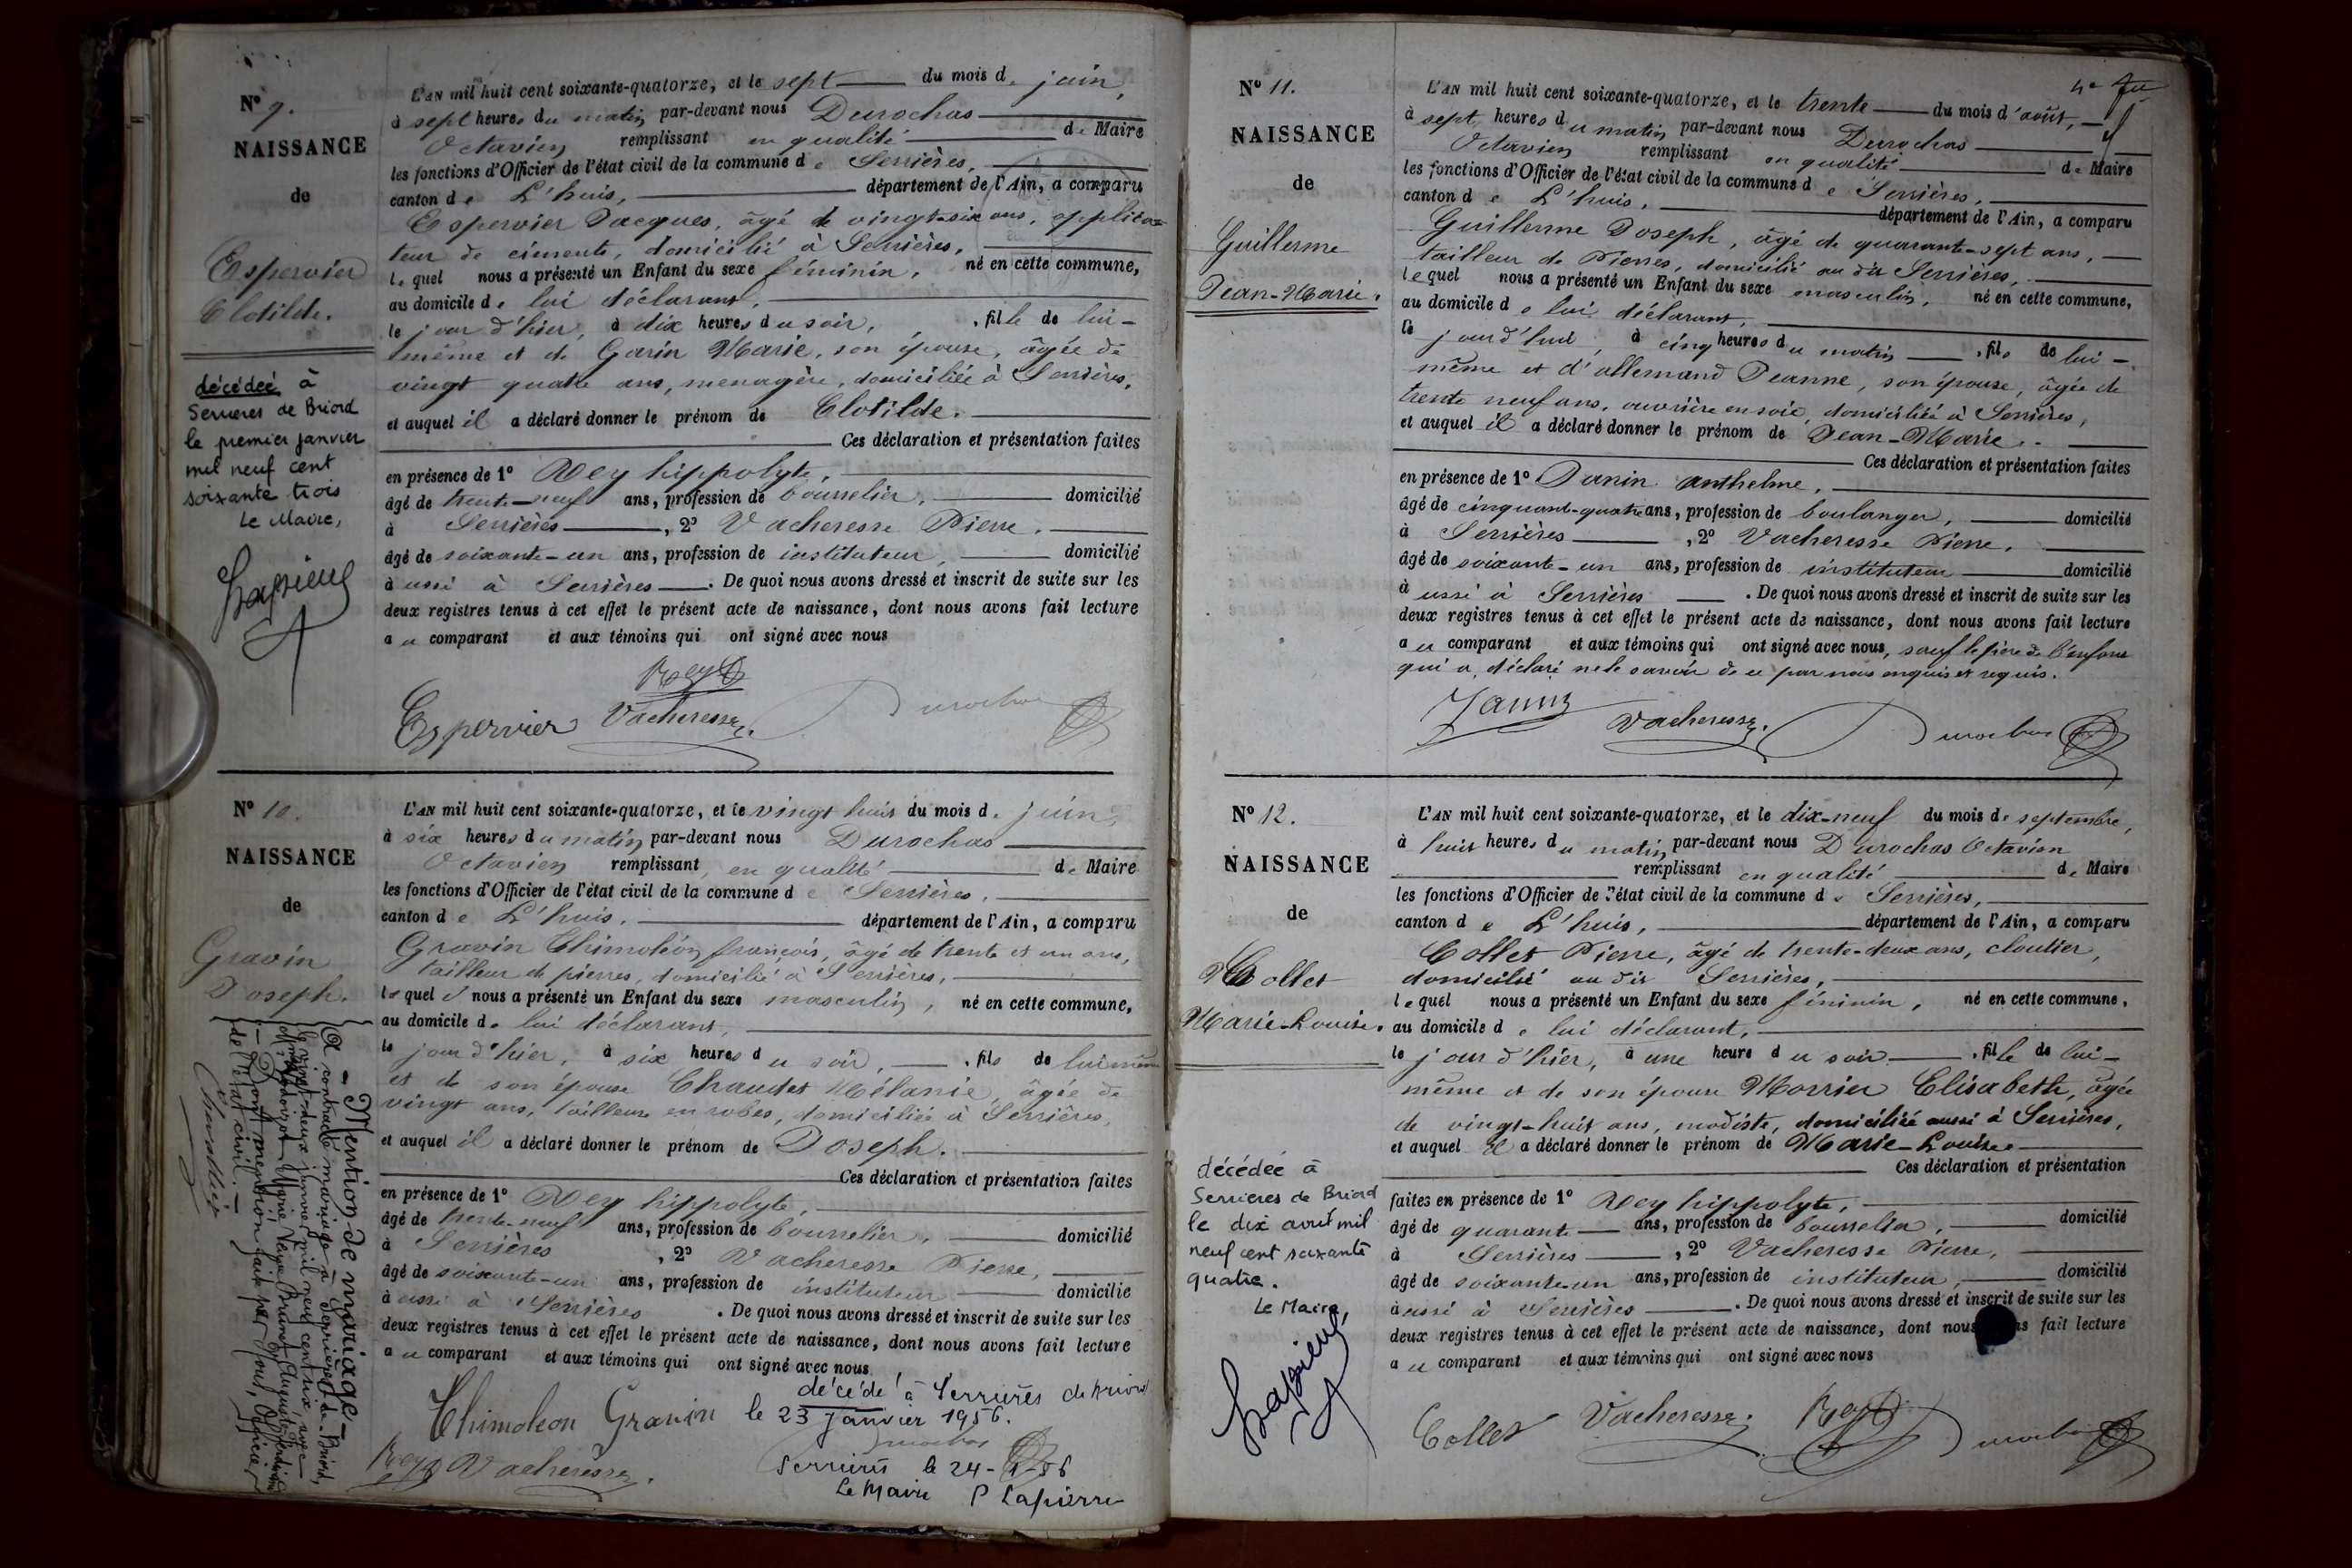 N° 9.
NAISSANCE
de
Espervier
Clotilde.
décédée à
Serrieres de Briord
le premier janvier
mil neuf cent
soixante trois
Le Maire,
Lapierre
L'AN mil huit cent soixante-quatorze, et le sept du mois de juin,
à sept heures du matin par-devant nous Durochas
Octavien remplissant en qualité de Maire
les fonctions d'Officier de l'état civil de la commune de Serrières,
canton de L'huis, département de l'Ain, a comparu
Espervier Jacques, âgé de vingt-six ans, applica-
teur de ciments, domicilié à Serrières,
lequel nous a présenté un Enfant du sexe féminin, né en cette commune,
au domicile de lui déclarant,
le jour d'hier, à dix heures du soir, , fille de lui-
même et de Garin Marie, son épouse, âgée de
vingt quatre ans, menagère, domiciliée à Serrières,
et auquel il a déclaré donner le prénom de Clotilde.
Ces déclaration et présentation faites
en présence de 1° Rey hippolyte,
âgé de trente-neuf ans, profession de bourrelier, domicilié
à Serrières, 2° Vacheresse Pierre,
âgé de soixante-un ans, profession de instituteur, domicilié
aussi à Serrières. De quoi nous avons dressé et inscrit de suite sur les
deux registres tenus à cet effet le présent acte de naissance, dont nous avons fait lecture
au comparant et aux témoins qui ont signé avec nous
Rey
Espervier Vacheresse Durochas
N° 10.
NAISSANCE
de
Gravin
Joseph.
- Mention de mariage -
A contracté mariage à Serrières-de-Briord,
le vingt-deux janvier mil neuf cent six, avec
Marie
- Dont mention faite par Nous, Officier
de l'état civil. -
L'AN mil huit cent soixante-quatorze, et le vingt huit du mois de juin,
à six heures du matin par-devant nous Durochas
Octavien remplissant en qualité de Maire
les fonctions d'Officier de l'état civil de la commune de Serrières,
canton de L'huis, département de l'Ain, a comparu
Gravin Thimoléon françois, âgé de trente et un ans,
tailleur de pierres, domicilié à Serrières,
lequel nous a présenté un Enfant du sexe masculin, né en cette commune,
au domicile de lui déclarant,
le jour d'hier, à six heures du soir, , fils de lui même
et de son épouse Chaudet Mélanie, âgée de
vingt ans, tailleuse en robes, domiciliée à Serrières,
et auquel il a déclaré donner le prénom de Joseph.
Ces déclaration et présentation faites
en présence de 1° Rey hippolyte,
âgé de trente-neuf ans, profession de bourrelier, domicilié
à Serrières, 2° Vacheresse Pierre,
âgé de soixante-un ans, profession de instituteur domicilié
aussi à Serrières. De quoi nous avons dressé et inscrit de suite sur les
deux registres tenus à cet effet le présent acte de naissance, dont nous avons fait lecture
au comparant et aux témoins qui ont signé avec nous
décédé à Serrières de Briord
Thimoleon Gravin le 23 janvier 1956.
Durochas
Rey Vacheresse
Serrières le 24-1-56
Le Maire P Lapierre
N° 11.
NAISSANCE
de
Guillerme
Jean-Marie.
L'AN mil huit cent soixante-quatorze, et le trente du mois d'août,
à sept heures du matin par-devant nous Durochas
Octavien remplissant en qualité de Maire
les fonctions d'Officier de l'état civil de la commune de Serrières,
canton de L'huis, département de l'Ain, a comparu
Guillerme Joseph, âgé de quarante-sept ans,
tailleur de Pierres, domicilié au dit Serrières,
lequel nous a présenté un Enfant du sexe masculin, né en cette commune,
au domicile de lui déclarant,
le jourd'hui, à cinq heures du matin, fils de lui-
même et d'allemand Jeanne, son épouse, âgée de
trente neuf ans, ouvrière en soie, domiciliée à Serrières,
et auquel il a déclaré donner le prénom de Jean-Marie.
Ces déclaration et présentation faites
en présence de 1° Janin anthelme,
âgé de cinquant-quatre ans, profession de boulanger, domicilié
à Serrières, 2° Vacheresse Pierre,
âgé de soixante-un ans, profession de instituteur domicilié
aussi à Serrières. De quoi nous avons dressé et inscrit de suite sur les
deux registres tenus à cet effet le présent acte de naissance, dont nous avons fait lecture
au comparant et aux témoins qui ont signé avec nous, sauf le père de l'enfant
qui a déclaré ne le savoir de ce par nous enquis et requis.
Janin Vacheresse. Durochas
N° 12.
NAISSANCE
de
Collet
Marie-Louise.
décédée à
Serrieres de Briord
le dix avril mil
neuf cent soixante
quatre.
Le Maire,
Lapierre
L'AN mil huit cent soixante-quatorze, et le dix-neuf du mois de septembre,
à huit heures du matin par-devant nous Durochas Octavien
remplissant en qualité de Maire
les fonctions d'Officier de l'état civil de la commune de Serrières,
canton de L'huis, département de l'Ain, a comparu
Collet Pierre, âgé de trente-deux ans, cloutier,
domicilié au dit Serrières,
lequel nous a présenté un Enfant du sexe féminin, né en cette commune,
au domicile de lui déclarant,
le jour d'hier, à une heure du soir, fille de lui-
même et de son épouse Morrier Elisabeth, âgée
de vingt-huit ans, modiste, domiciliée aussi à Serrières,
et auquel il a déclaré donner le prénom de Marie-Louise
Ces déclaration et présentation
faites en présence de 1° Rey hippolyte,
âgé de quarant ans, profession de bourrelier, domicilié
à Serrières, 2° Vacheresse Pierre,
âgé de soixante-un ans, profession de instituteur, domicilié
aussi à Serrières. De quoi nous avons dressé et inscrit de suite sur les
deux registres tenus à cet effet le présent acte de naissance, dont nous fait lecture
au comparant et aux témoins qui ont signé avec nous
Collet Vacheresse Rey Durochas